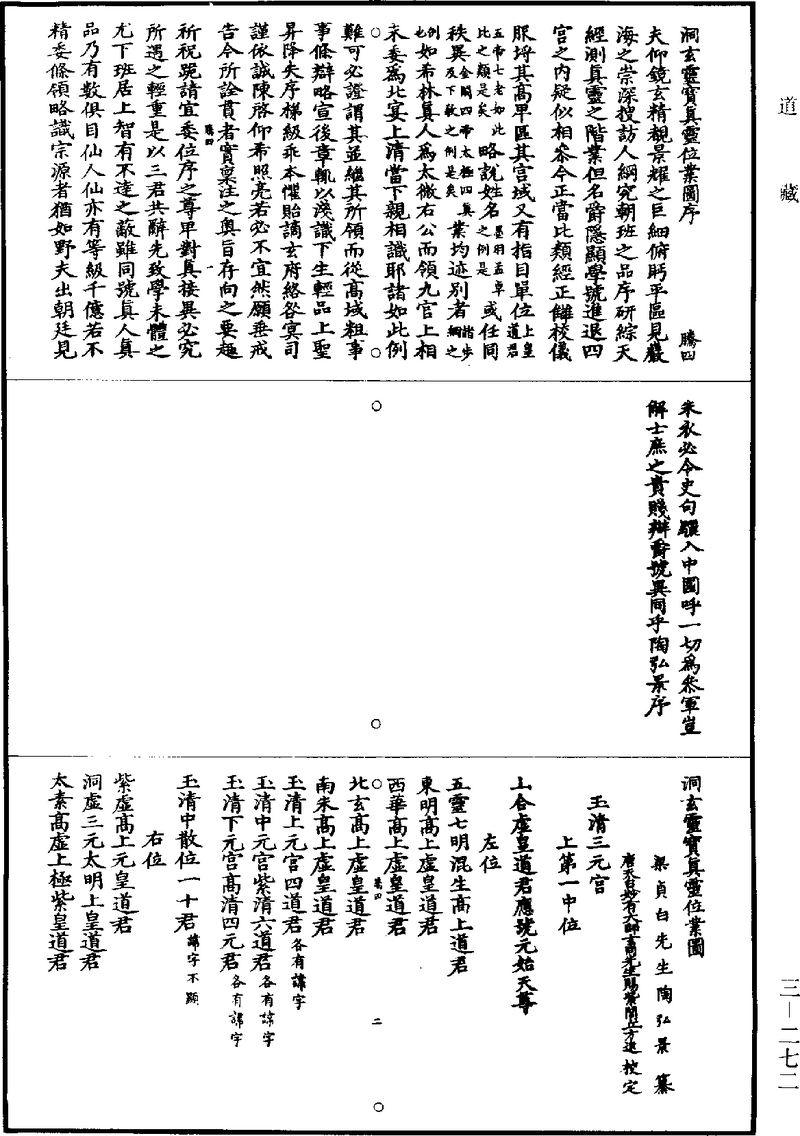 道藏
洞玄靈寶真靈位業圖序
騰四
夫仰鏡玄精覩景耀之巨細俯眄平區見巖
海之崇深搜訪人綱究朝班之品序研綜天
經測真靈之階業但名爵隱顯學號進退四
宮之內疑似相參今正當比類經正讎校儀
服埒其高卑區其宮域又有指目單位上皇道君
五帝七老如此比之類是矣略說姓名墨羽孟卓之例是或任同
秩異金闕四帝太極四真及下教之例是矣業均迹別者諸步綱之
例也如希林真人為太微右公而領九宮上相
未委為北宴上清當下親相識耶諸如此例
難可必證謂其並繼其所領而從高域粗事
事條辯略宣後章輒以淺識下生輕品上聖
昇降失序梯級乖本懼貽謫玄府絡咎冥司
謹依誠陳啓仰希照亮若必不宜然願垂戒
告今所詮貫者實稟注之奧旨存向之要趣
萬四
一
祈祝跪請宜委位序之尊卑對真接異必究
所遇之輕重是以三君共辭先致學未體之
尤下班居上智有不達之蔽雖同號真人真
品乃有數俱目仙人仙亦有等級千億若不
精委條領略識宗源者猶如野夫出朝廷見
朱衣必令史句驪入中國呼一切為參軍豈
解士庶之貴賤辯爵號異同乎陶弘景序
洞玄靈寶真靈位業圖
梁貞白先生陶弘景纂
唐天台妙有大師玄同先生賜紫閭丘方遠校定
玉清三元宮
上第一中位
上合虛皇道君應號元始天尊
左位
五靈七明混生高上道君
東明高上虛皇道君
西華高上虛皇道君
萬四
二
北玄高上虛皇道君
南朱高上虛皇道君
玉清上元宮四道君各有諱字
玉清中元宮紫清六道君各有諱字
玉清下元宮高清四元君各有諱字
玉清中散位一十君諱字不顯
右位
紫虛高上元皇道君
洞虛三元太明上皇道君
太素高虛上極紫皇道君
三—二七二